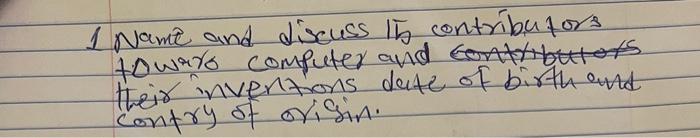 1 Name and discuss 15 contributors
towards computer and contributors
their inventions date of birth and
contry of origin.